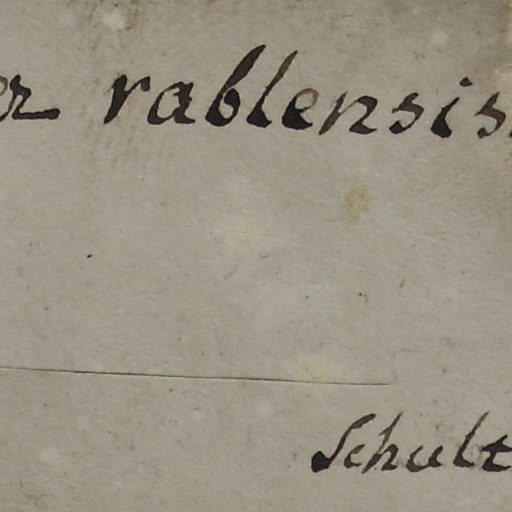 er rablensis.
Schult